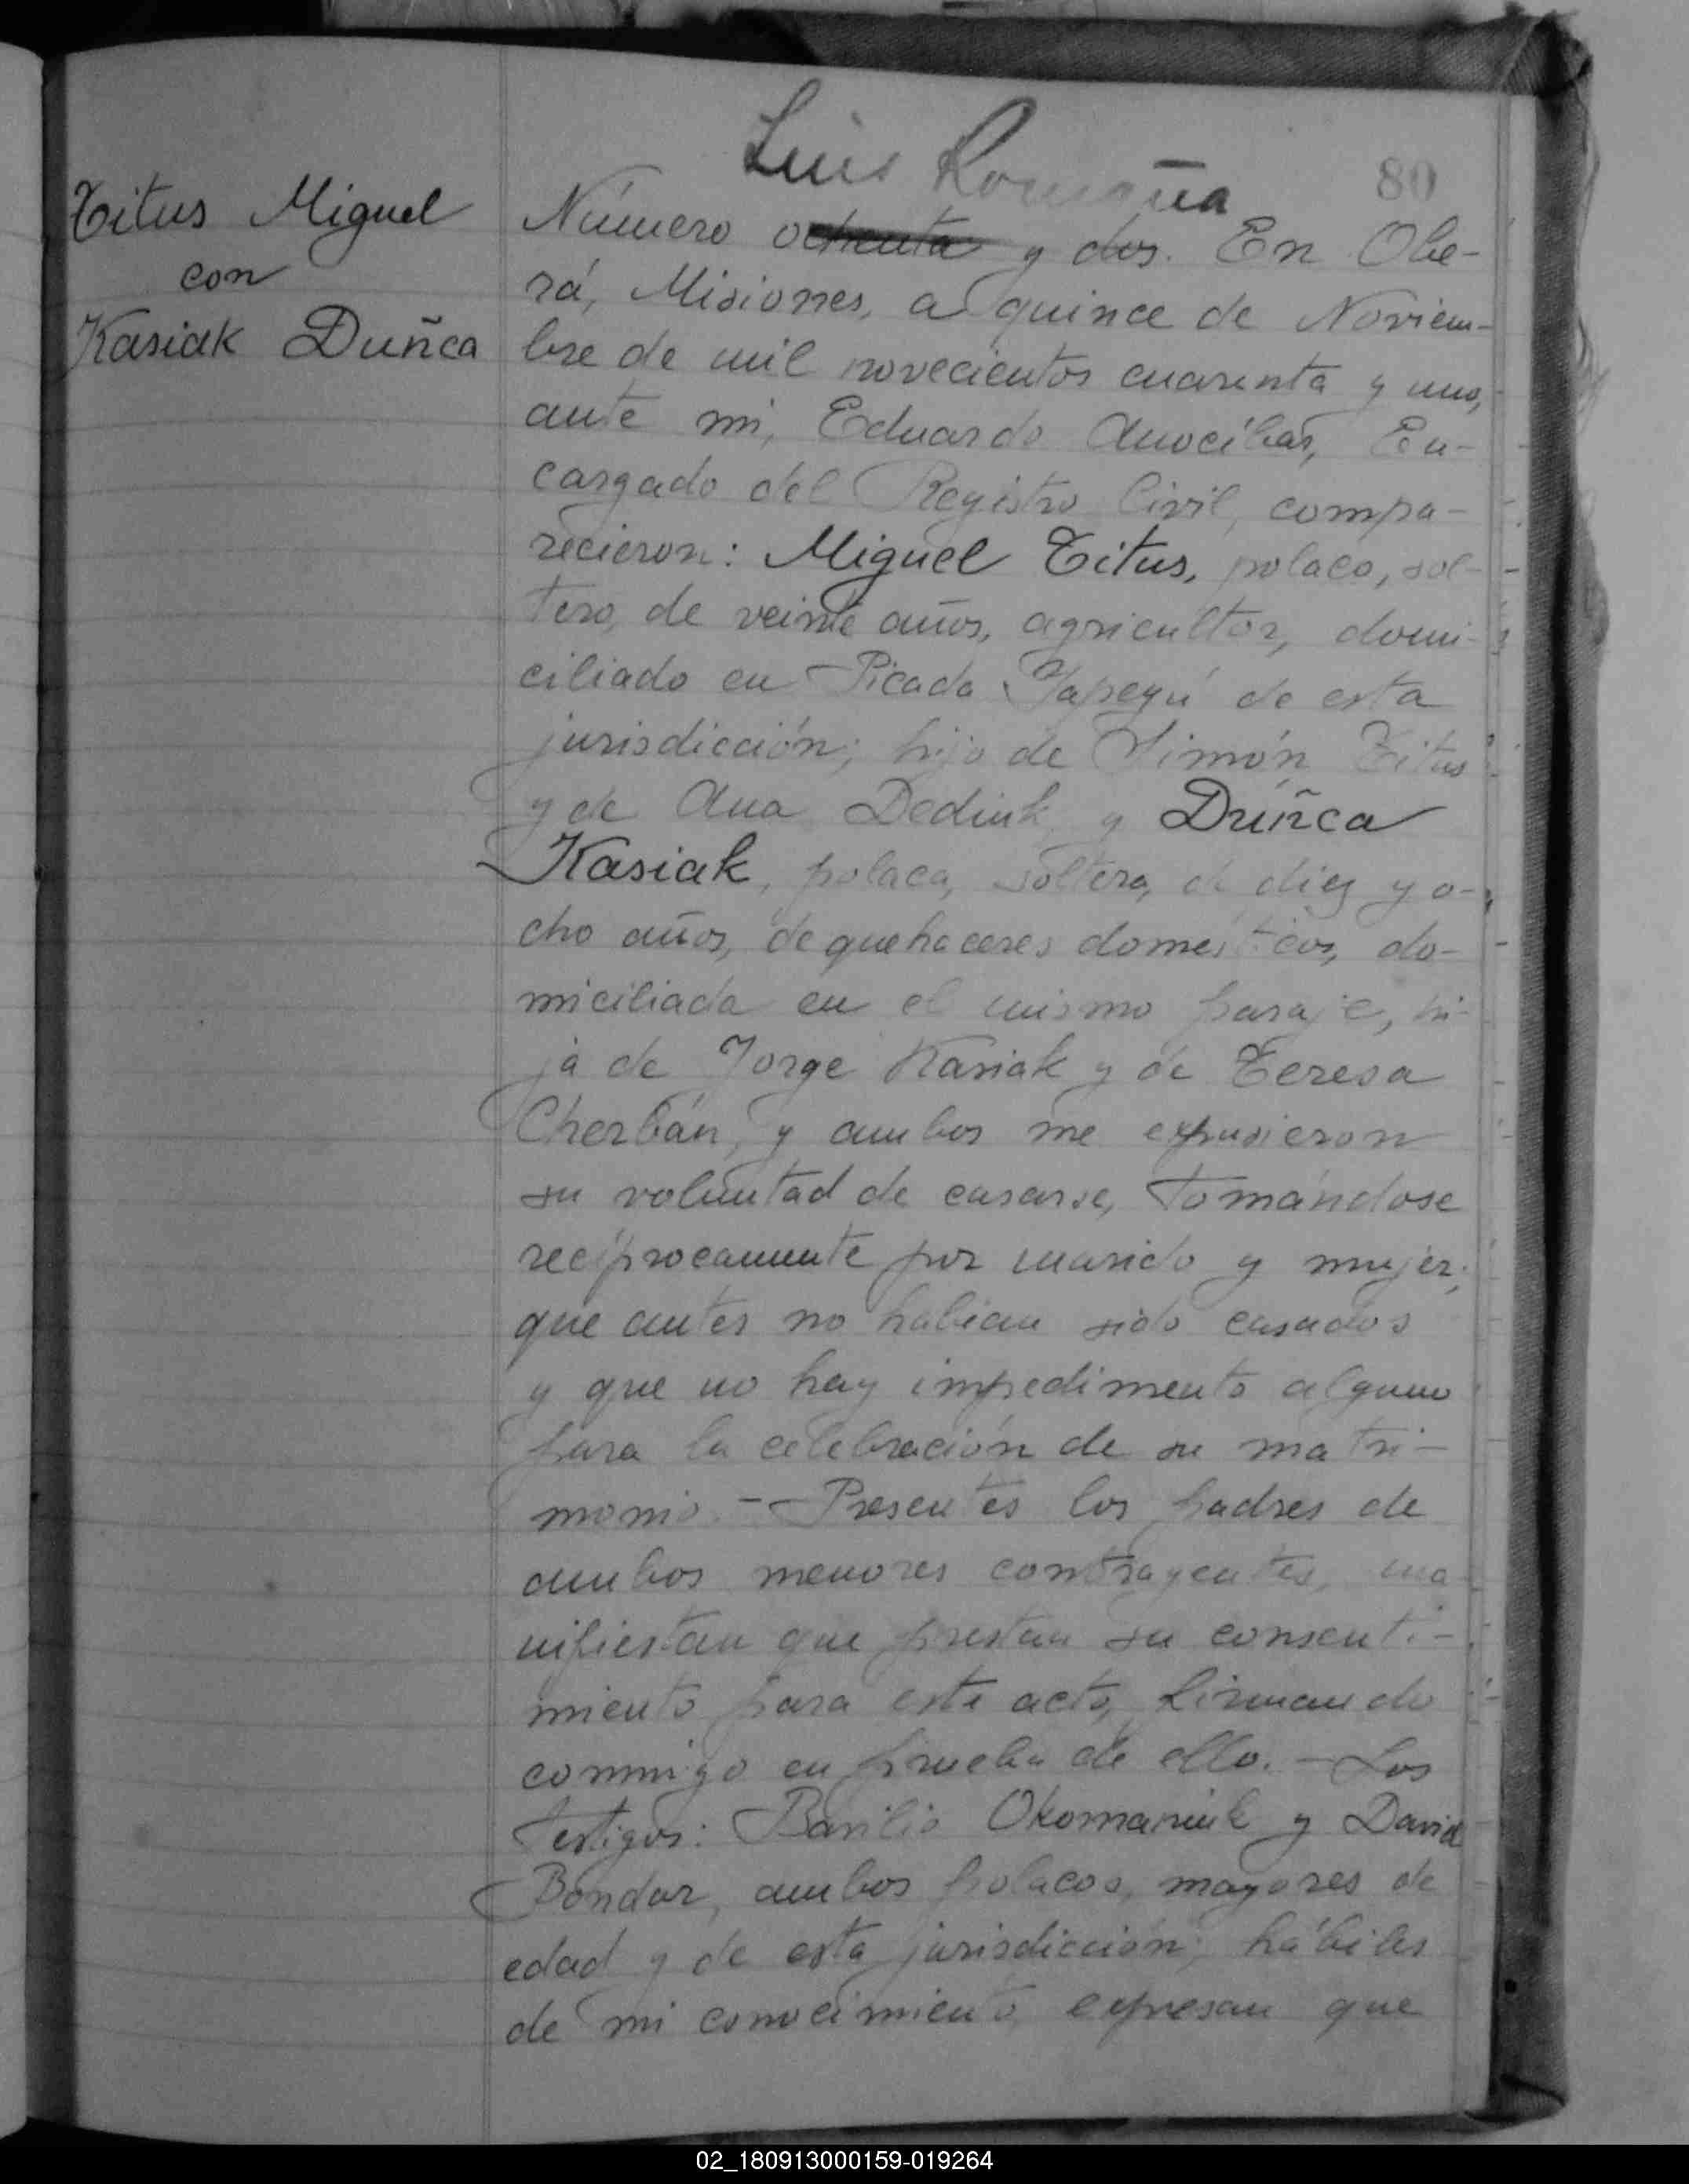 Luis Romaña
80
Titus Miguel
con
Kasiak Duñca
Número ochenta y dos. En Obe-
rá, Misiones, a quince de Noviem-
bre de mil novecientos cuarenta y uno,
ante mi, Eduardo Anocíbar, En-
cargado del Registro Civil, compa-
recieron: Miguel Titus, polaco, sol-
tero, de veinte años, agricultor, domi-
ciliado en Picada Yapeyú de esta
jurisdicción; hijo de Simón Titus
y de Ana Dediuk y Duñca
Kasiak, polaca, soltera, de diez y o-
cho años, de quehaceres domesticos, do-
miciliada en el mismo paraje, hi-
ja de Jorge Kasiak y de Teresa
Cherbán, y ambos me expusieron
su voluntad de casarse, tomándose
recíprocamente por marido y mujer;
que antes no habian sido casados
y que no hay impedimento alguno
para la celebración de su matri-
monio. - Presentes los padres de
ambos menores contrayentes, ma-
nifiestan que prestan su consenti-
miento para este acto, firmando
conmigo en prueba de ello. - Los
testigos: Basilio Okomaniuk y David
Bondar, ambos polacos, mayores de
edad y de esta jurisdicción; hábiles
de mi conocimiento expresan que
02_180913000159-019264